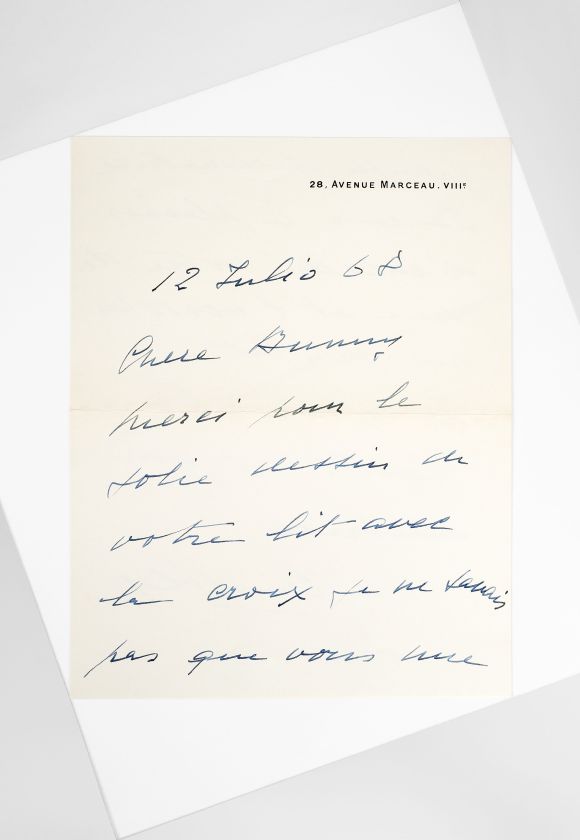 28, AVENUE MARCEAU. VIIIᵉ
12 Julio 68
Chere Bunny
merci pour le
jolie dessin de
votre lit avec
la croix je ne savais
pas que vous une